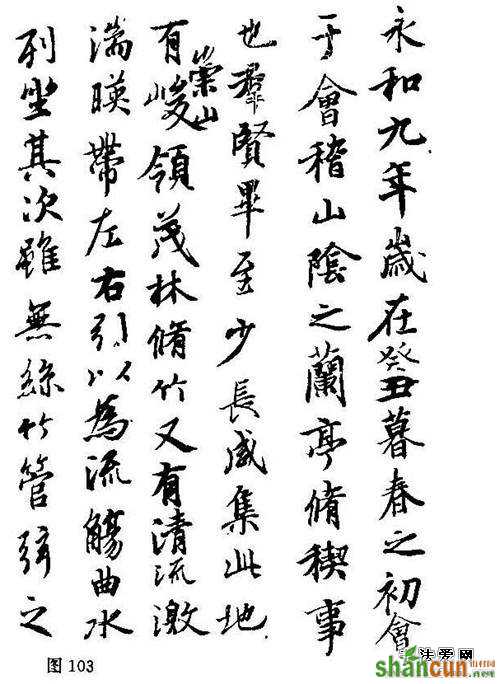 永和九年歲在癸丑暮春之初會
于會稽山陰之蘭亭脩稧事
也羣賢畢至少長咸集此地
有崇山峻領茂林脩竹又有清流激
湍暎帶左右引以為流觴曲水
列坐其次雖無絲竹管弦之
图 103
法爱网
shancun
.net